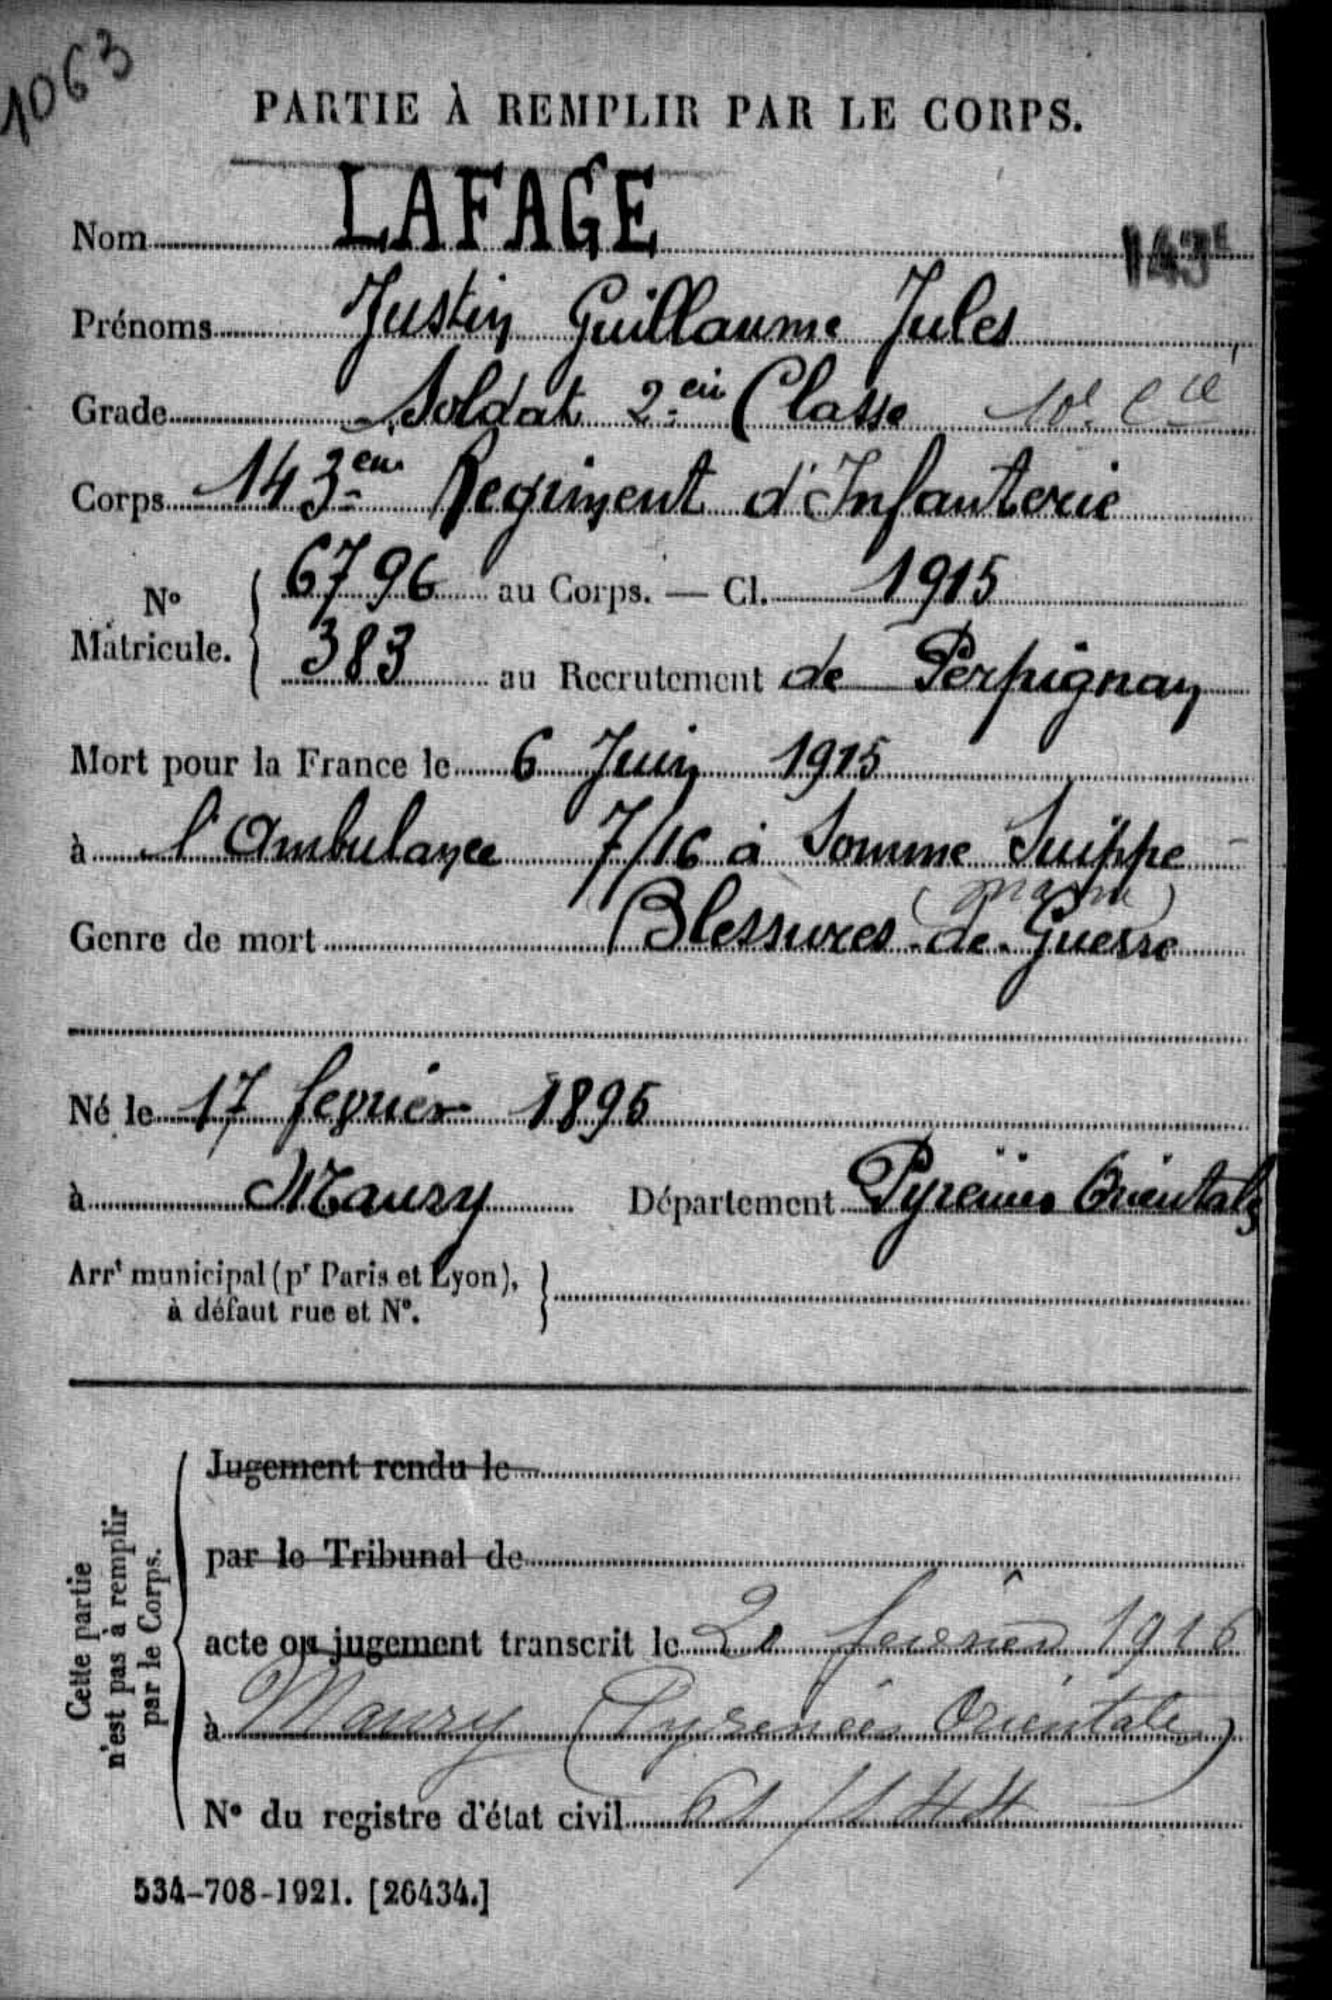 1063
PARTIE À REMPLIR PAR LE CORPS.
Nom LAFAGE
143E
Prénoms Justin Guillaume Jules
Grade Soldat 2em Classe 10e Cie
Corps 143em Regiment d'Infanterie
No Matricule. { 6796 au Corps. — Cl. 1915
383 au Recrutement de Perpignan
Mort pour la France le 6 Juin 1915
à l'Ambulance 7/16 à Somme Suippe
(Marne)
Genre de mort Blessures de Guerre
Né le 17 fevrier 1895
à Maury Département Pyrénées Orientales
Arrt municipal (pr Paris et Lyon),
à défaut rue et No.
Cette partie
n'est pas à remplir
par le Corps.
Jugement rendu le
par le Tribunal de
acte ou jugement transcrit le 20 février 1916
à Maury (Pyrénées Orientales)
No du registre d'état civil 61/144
534-708-1921. [26434.]